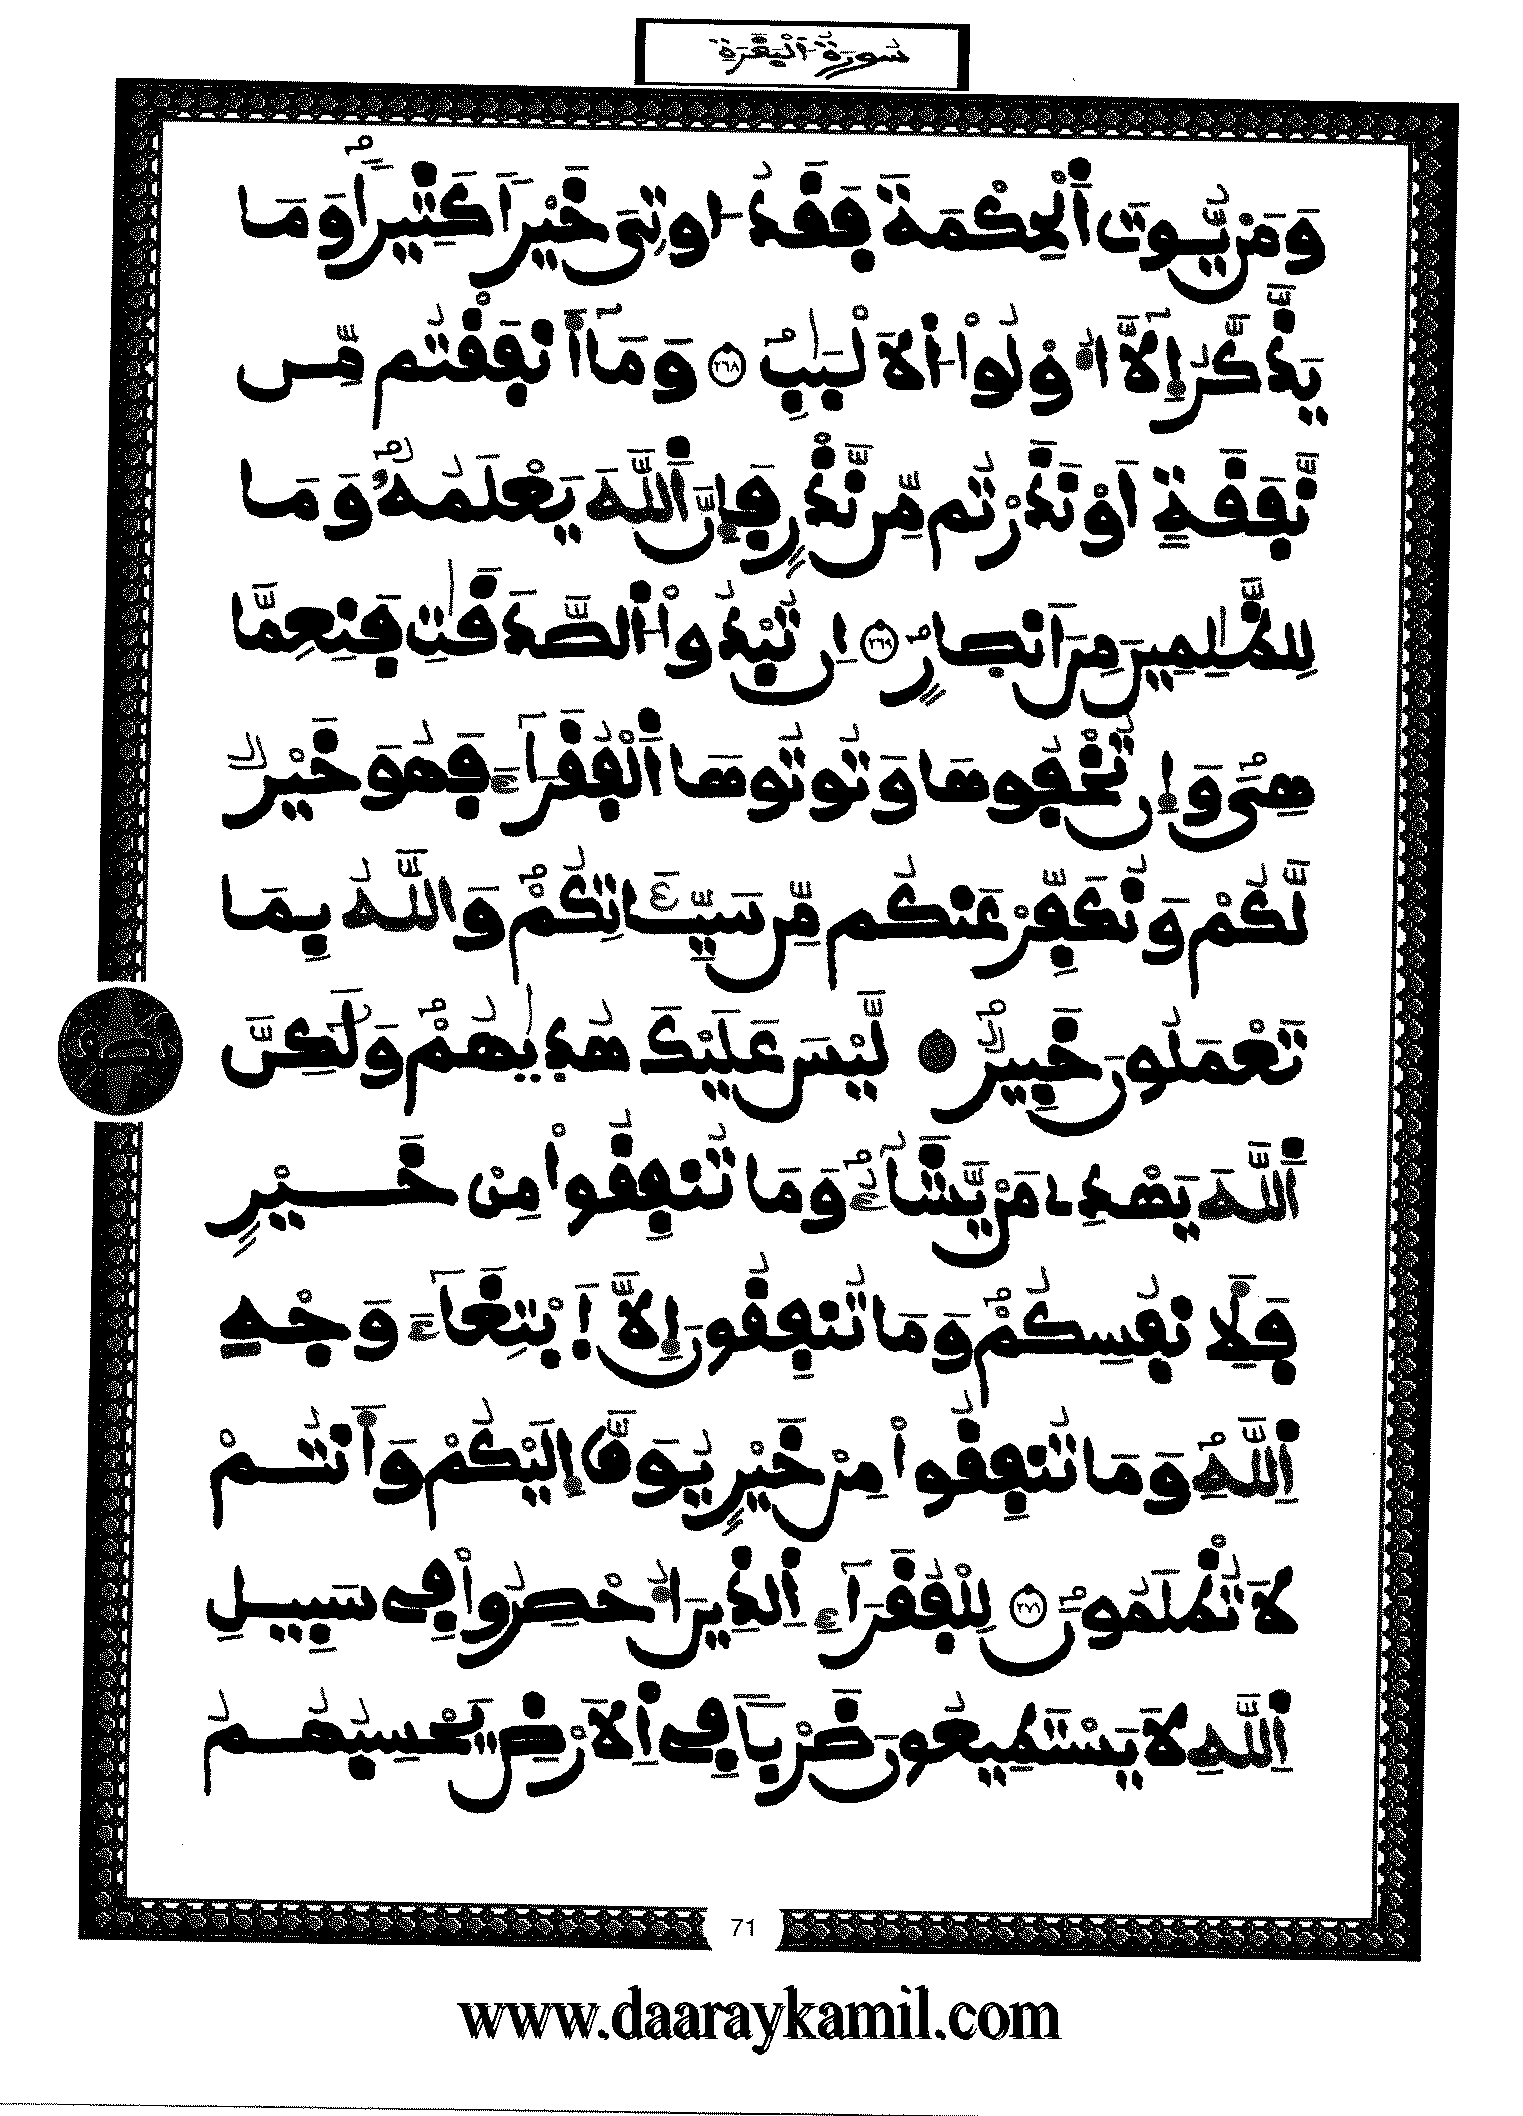 سُورَةُ الْبَقَرَةِ
وَمَنْ يُّوتَ اَ۬لْحِكْمَةَ فَقَدُ ا۟وتِيَ خَيْراٗ كَثِيراٗ وَمَا
يَذَّكَّرُ إِلَّآ أُوْلُواْ اُ۬لَالْبَٰبِ ٢٦٨ وَمَآ أَنفَقْتُم مِّن
نَّفَقَةٍ اَوْ نَذَرْتُم مِّن نَّذْرٖ فَإِنَّ اَ۬للَّهَ يَعْلَمُهُۥ وَمَا
لِلظَّٰلِمِينَ مِنَ اَنصَارٍ ٢٦٩ اِن تُبْدُواْ اُ۬لصَّدَقَٰتِ فَنِعِمَّا
هِيَ وَإِن تُخْفُوهَا وَتُوتُوهَا اَ۬لْفُقَرَآءَ فَهُوَ خَيْرٞ
لَّكُمْ وَنُكَفِّرْ عَنكُم مِّن سَيِّـَٔاتِكُمْ وَاللَّهُ بِمَا
تَعْمَلُونَ خَبِيرٞ لَّيْسَ عَلَيْكَ هُد۪يٰهُمْ وَلَٰكِنَّ
اَ۬للَّهَ يَهْدِے مَنْ يَّشَآءُ وَمَا تُنفِقُواْ مِنْ خَيْرٖ
فَلِأَنفُسِكُمْ وَمَا تُنفِقُونَ إِلَّا اَ۪بْتِغَآءَ وَجْهِ
اِ۬للَّهِ وَمَا تُنفِقُواْ مِنْ خَيْرٖ يُوَفَّ إِلَيْكُمْ وَأَنتُمْ
لَا تُظْلَمُونَ ٢٧١ لِلْفُقَرَآءِ اِ۬لذِينَ أُحْصِرُواْ فِي سَبِيلِ
اِ۬للَّهِ لَا يَسْتَطِيعُونَ ضَرْباٗ فِي اِ۬لَارْضِ يَحْسِبُهُمُ
71
www.daaraykamil.com